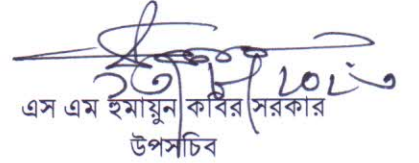 এস এম হুমায়ুন কবির সরকার
উপসচিব